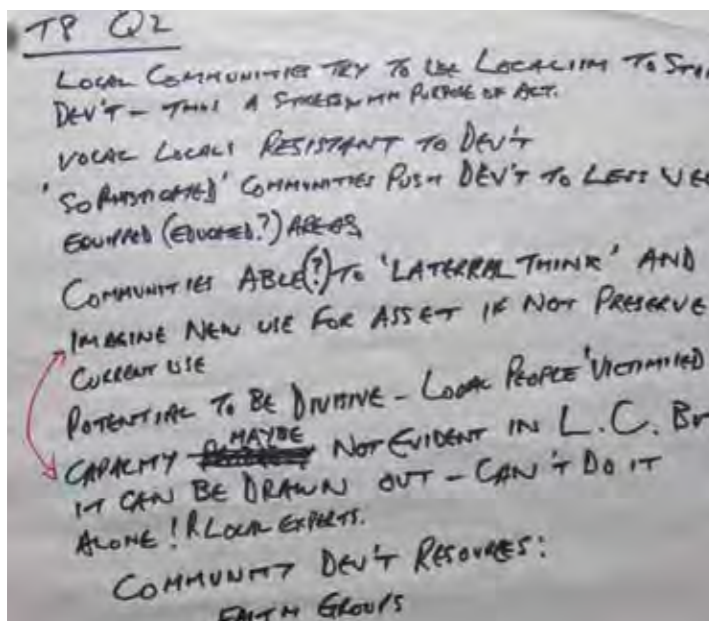 T8 Q2
LOCAL COMMUNITIES TRY TO USE LOCALISM TO
DEV'T - THUS A PURPOSE OF ACT.
VOCAL LOCALS RESISTANT TO DEV'T
'SOPHISTICATED' COMMUNITIES PUSH DEV'T TO LESS
EQUIPPED (EDUCATED?) AREAS
COMMUNITIES ABLE(?) TO 'LATERRAL THINK' AND
IMAGINE NEW USE FOR ASSET IF NOT PRESERVE
CURRENT USE
POTENTIAL TO BE DIVISIVE - LOCAL PEOPLE 'VICTIMISED
CAPACITY MAYBE NOT EVIDENT IN L.C. BUT
IT CAN BE DRAWN OUT - CAN'T DO IT
ALONE! LOCAL EXPERTS.
COMMUNITY DEV'T RESOURCES:
FAITH GROUPS